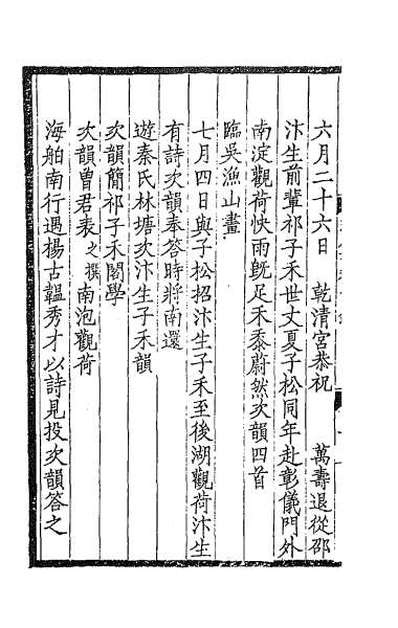 六月二十六日　乾清宮恭祝　萬壽退從邵
汴生前輩祁子禾世丈夏子松同年赴彰儀門外
南淀觀荷快雨旣足禾黍蔚然次韻四首
臨吳漁山畫
七月四日與子松招汴生子禾至後湖觀荷汴生
有詩次韻奉答時將南還
遊秦氏林塘次汴生子禾韻
次韻簡祁子禾閣學
次韻曾君表之撰南泡觀荷
海舶南行遇楊古韞秀才以詩見投次韻答之